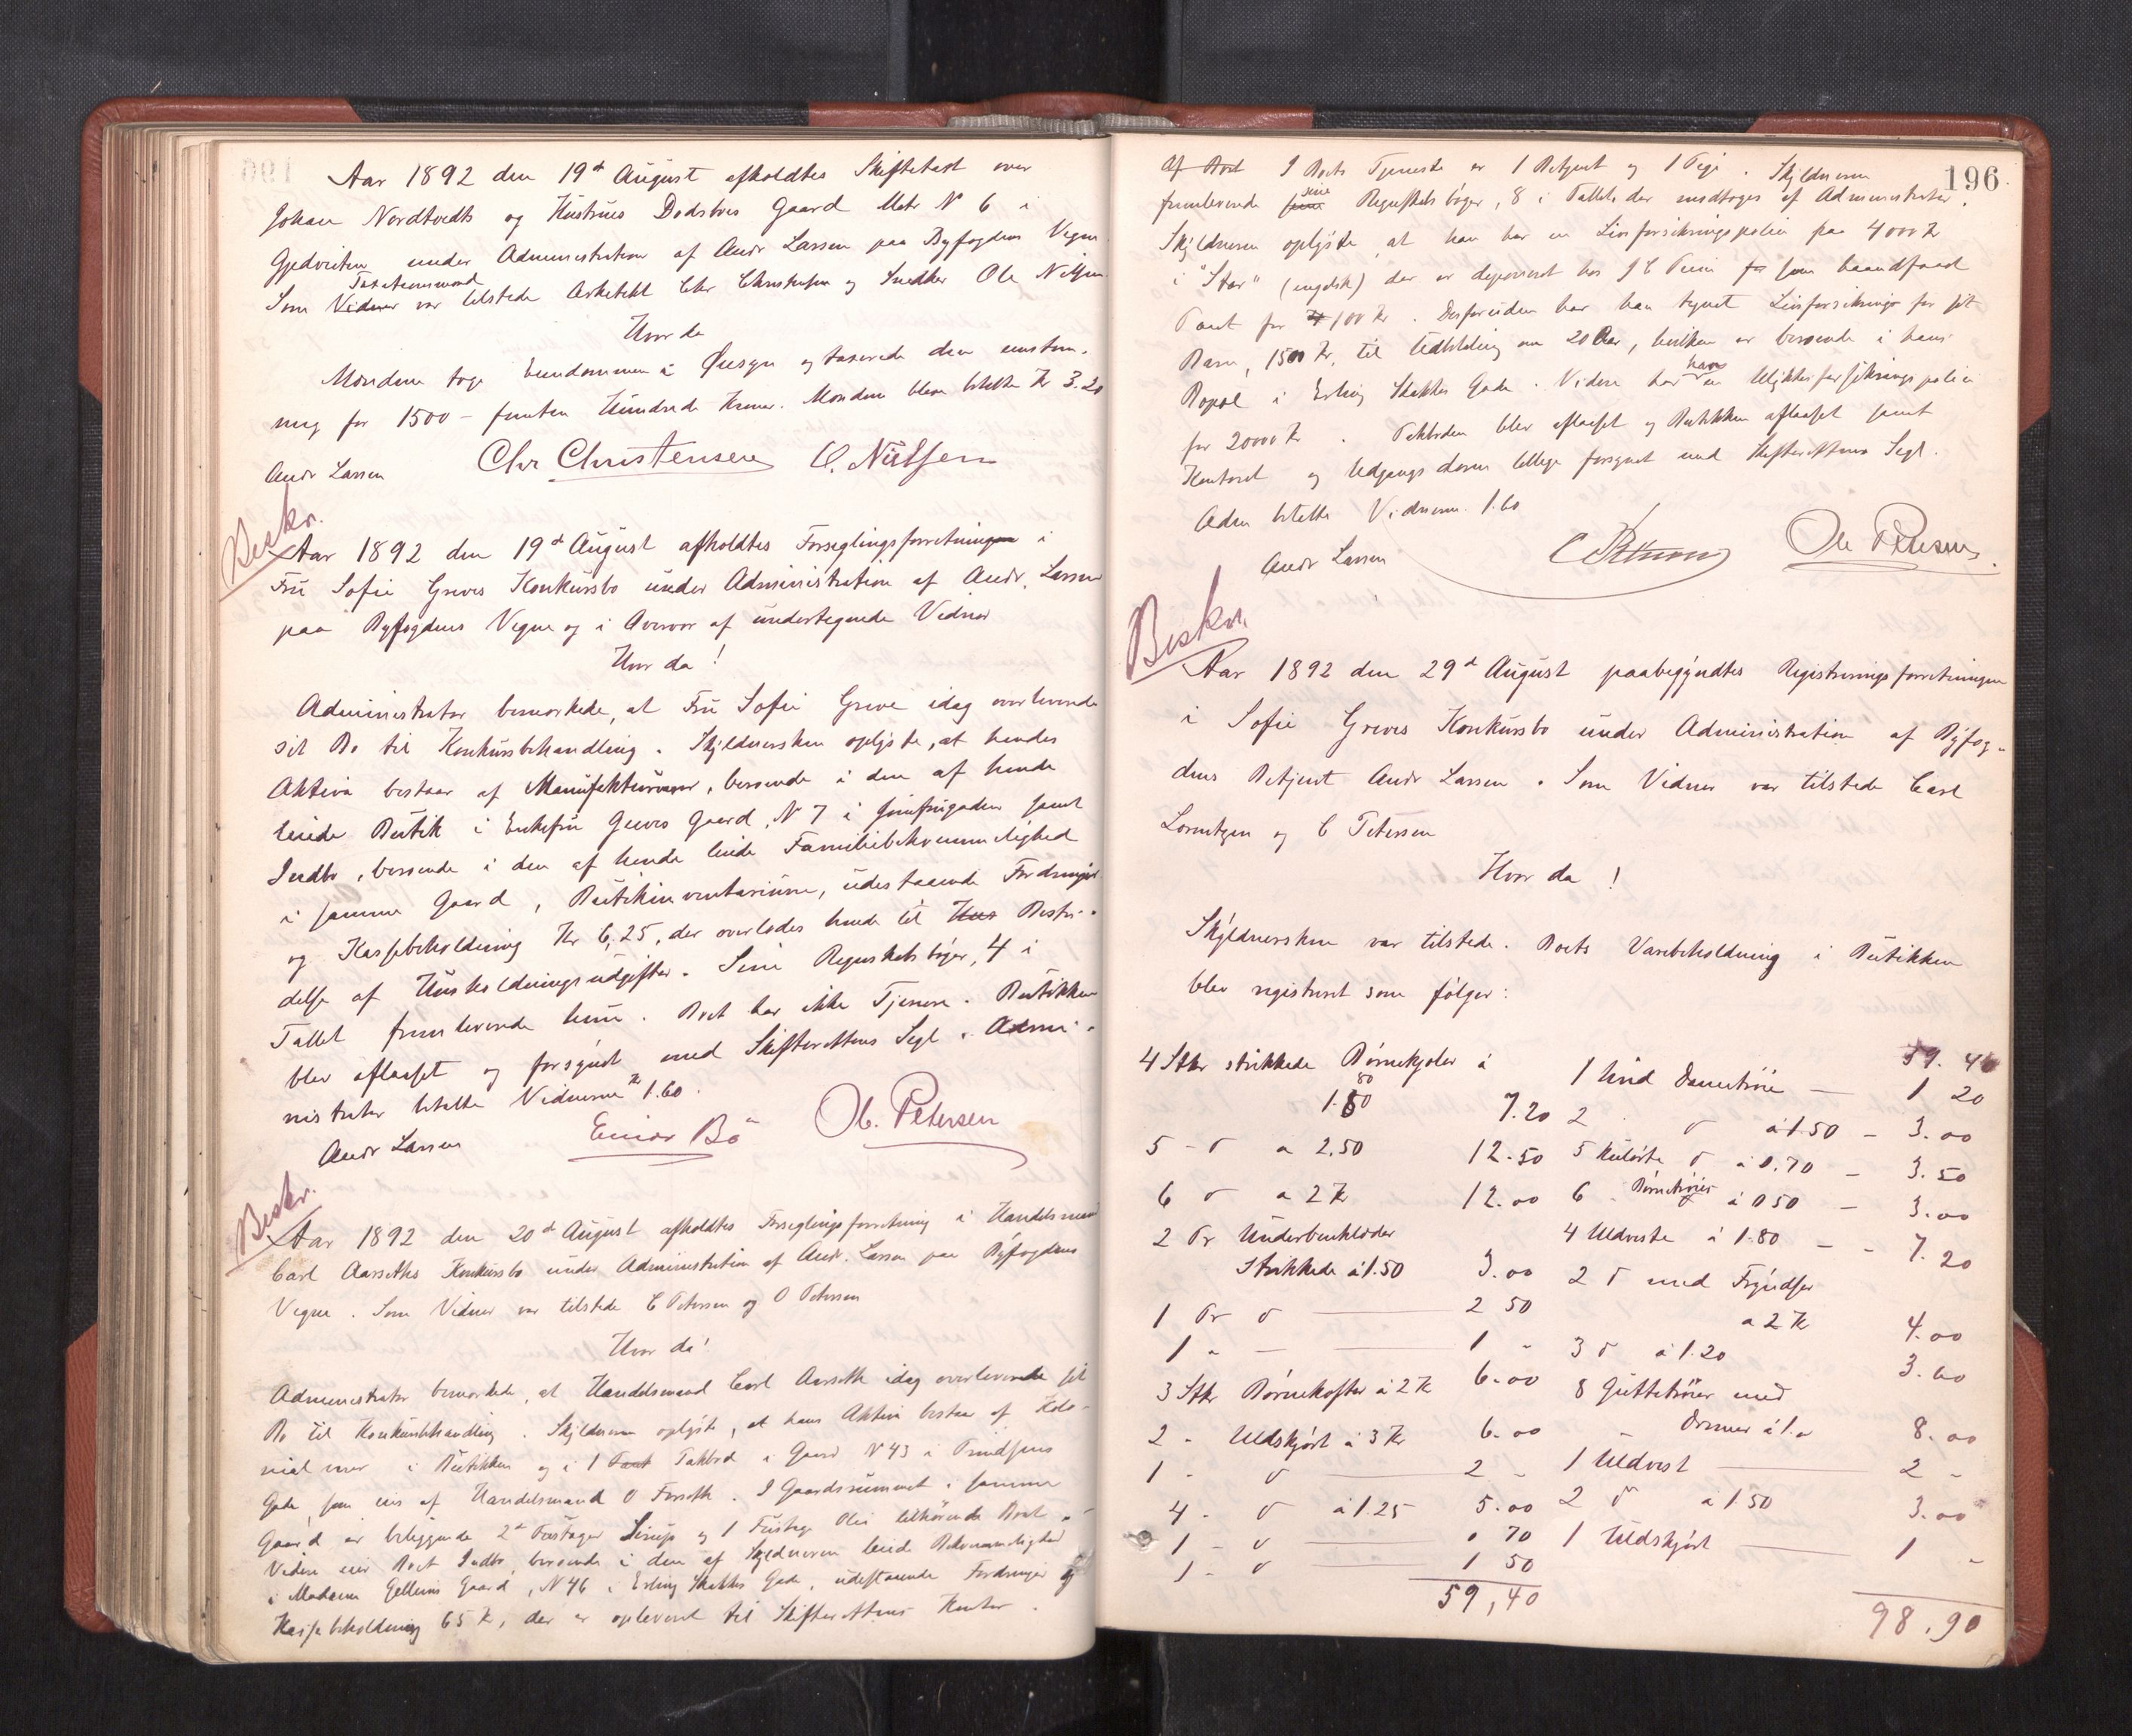 Aar 1892 den 19de August afholdtes Skiftetaxt over
Johan Nordtvedts og Hustrues Dødsboes Gaard Matr N 6 i
Gjedviken under Administration af Andr Larsen paa Byfogdens Vegne.
Taxationsmænd
Som Vidner var tilstede Arkitekt Chr Christensen og Snedker Ole Nilsen
Hvor da
Mændene tog Eiendommen i Øiesyn og taxerede den enstem-
mig for 1500 - femten Hundrede Kroner. Mændene bleve betalte Kr 3.20
Andr Larsen Chr Christensen O. Nilssen
Beskr.
Aar 1892 den 19de August afholdtes Forseglingsforretningen i
Fru Sofie Greves Konkursbo under Administration af Andr. Larsen
paa Byfogdens Vegne og i Overvær af undertegnede Vidner
Hvor da!
Administrator bemærkede, at Fru Sofie Greve idag overleverede
sit Bo til Konkursbehandling. Skyldnersken oplyste, at hendes
Aktiva bestaar af Manufakturvarer, beroende i den af hende
leiede Butik i Enkefru Greves Gaard, N 7 i Jomfrugaden samt
Indbo, beroende i den af hende leide Familiebekvemmelighed
i samme Gaard, Butikinventarium, udestaaende Fordringer
og Kassebeholdning Kr 6,25, der overlodes hende til Hus Bestri-
delse af Husholdningsudgifter. Sine Regnskabsbøger, 4 i
Tallet fremleverede hun. Boet har ikke Tjenere. Butikken
blev aflaaset og forsynet med Skifterettens Segl. Admi-
nistrator betalte Vidnerne Kr 1.60.
Andr Larsen Einar Bö Ole Petersen
Beskr.
Aar 1892 den 20de August afholdtes Forseglingsforretning i Handelsmand
Carl Aarseths Konkursbo under Administration af Andr. Larsen paa Byfogdens
Vegne. Som Vidner var tilstede C Petersen og O Petersen
Hvor da!
Administrator bemærkede, at Handelsmand Carl Aarseth idag overleverede sit
Bo til Konkursbehandling. Skyldneren oplyste, at hans Aktiva bestaar af Kolo-
nialvarer i Butikken og i 1 Pakbod i Gaard N 43 i
Gade, som eies af Handelsmand O Forseth. I Gaardsrummet i samme
Gaard er beliggende 2de Fustager Sirup og 1 Fustage Olie tilhørende Boet.
Videre eier Boet Indbo, beroende i den af Skyldneren leiede Bekvemmelighed
i Madame Gelleins Gaard, N 46 i Erling Skakkes Gade, udestaaende Fordringer og
Kassebeholdning 65 Kr, der er opleveret til Skifterettens Kontor.
196
Af Boet I Boets Tjeneste er 1 Betjent og 1 Pige. Skyldneren
sine
fremleverede Regnskabsbøger, 8 i Tallet, der modtoges af Administrator.
Skyldneren oplyste, at han har en Livsforsikringspolice paa 4000 Kr
i "Star" (engelsk) der er deponeret hos som haandfaaet
Pant for 100 Kr. Desforuden har han tegnet Livsforsikring for sit
Barn, 1500 Kr, til Udbetaling om 20 Aar, hvilken er beroende i hans
Bopæl i Erling Skakkes Gade. Videre har han en Ulykkesforsikringspolice
for 20000 Kr. Pakboden blev aflaaset og Butikken aflaaset samt
Kontoret og Udgangsdøren tillige forsynet med Skifterettens Segl.
Adm betalte Vidnerne 1.60
Andr Larsen C Petersen Ole Petersen.
Beskr.
Aar 1892 den 29de August paabegyndtes Registreringsforretningen
i Sofie Greves Konkursbo under Administration af Byfog-
dens Betjent Andr Larsen. Som Vidner var tilstede Carl
Lorentzen og C Petersen
Hvor da!
Skyldnersken var tilstede. Boets Varebeholdning i Butikken
blev registreret som følger:
4 Stkr strikkede Børnekjoler á
1.80 7.20
5 - d a 2.50 12.50
6 d a 2 Kr 12.00
2 Pr Underbenklæder
Strikkede á 1.50 3.00
1 Pr d 2 50
1 - 1 -
3 Stkr Børnekofter á 2 Kr 6.00
2 - Uldskjørt á 3 Kr 6.00
1 - d 2 -
4 - d á 1.25 5.00
1 - d 0 70
1 - d 1 50
59,40
59.40
1 hvid Dametrøie 1 20
2 d á 1.50 - 3.00
5 kulørte d á 0.70 - 3.50
6 - Børnetrøier á 0 50 - 3.00
4 Uldveste á 1.80 - 7.20
2 d med Fryndser
a 2 Kr 4.00
3 d á 1.20 3.60
8 Guttetrøier med
Ærmer á 1.- 8.00
1 Uldvest 2 -
2 d á 1.50 3.00
1 Uldskjørt 1 -
98.90